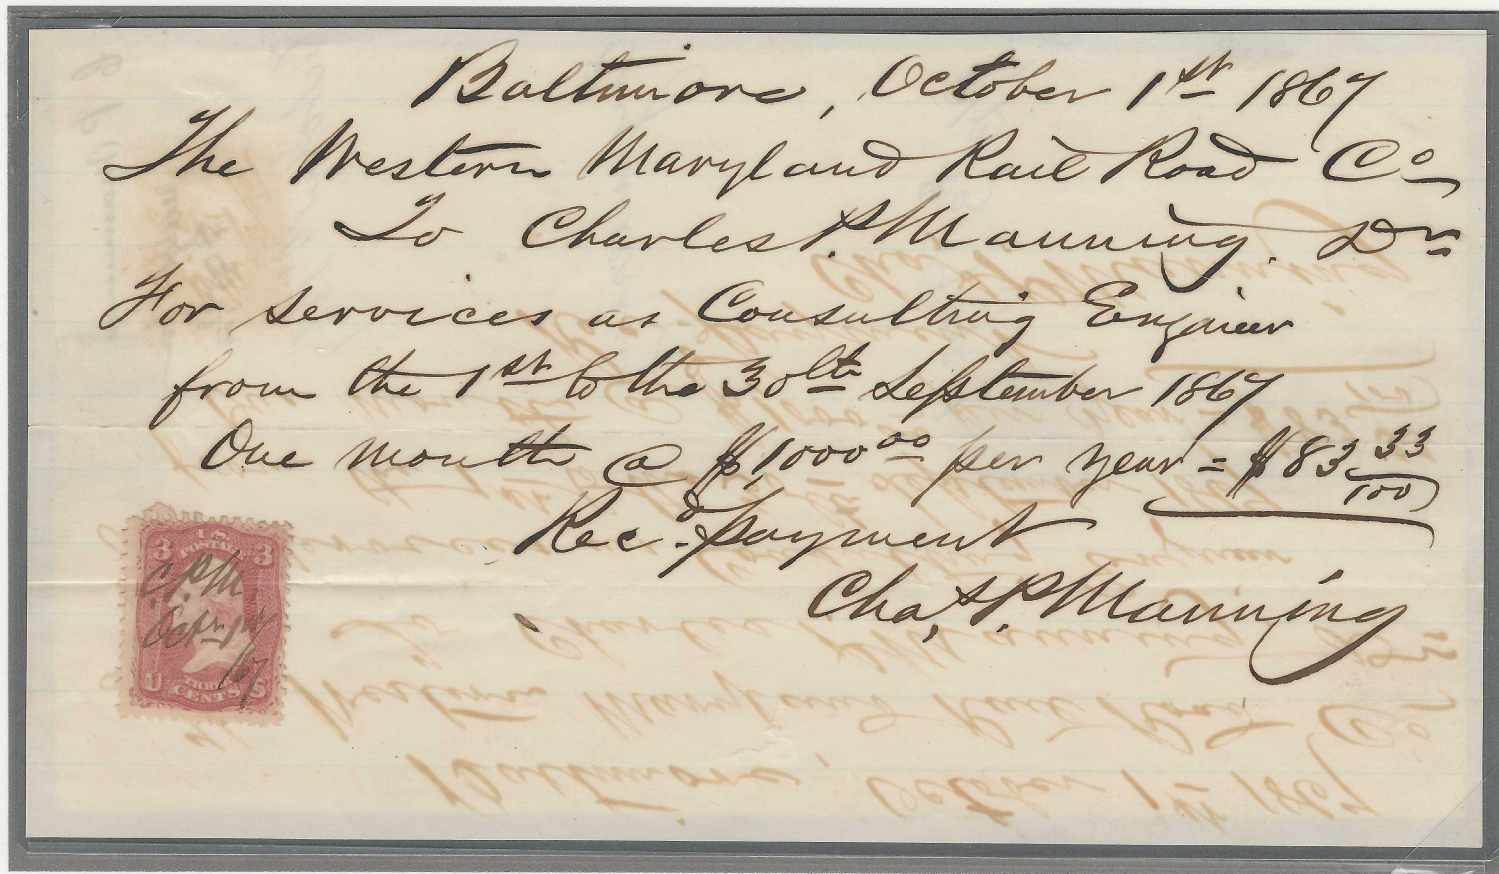 Baltimore, October 1st 1867
The Western Maryland Rail Road Co
To Charles P. Manning Dr
For services as Consulting Engineer
from the 1st to the 30th September 1867
One month @ $1,000 00 per year = $83 33/100
Rec'd payment
Chas. P. Manning
3 U.S. POSTAGE 3
C.P.M.
Oct. 1st
/67
U THREE CENTS S